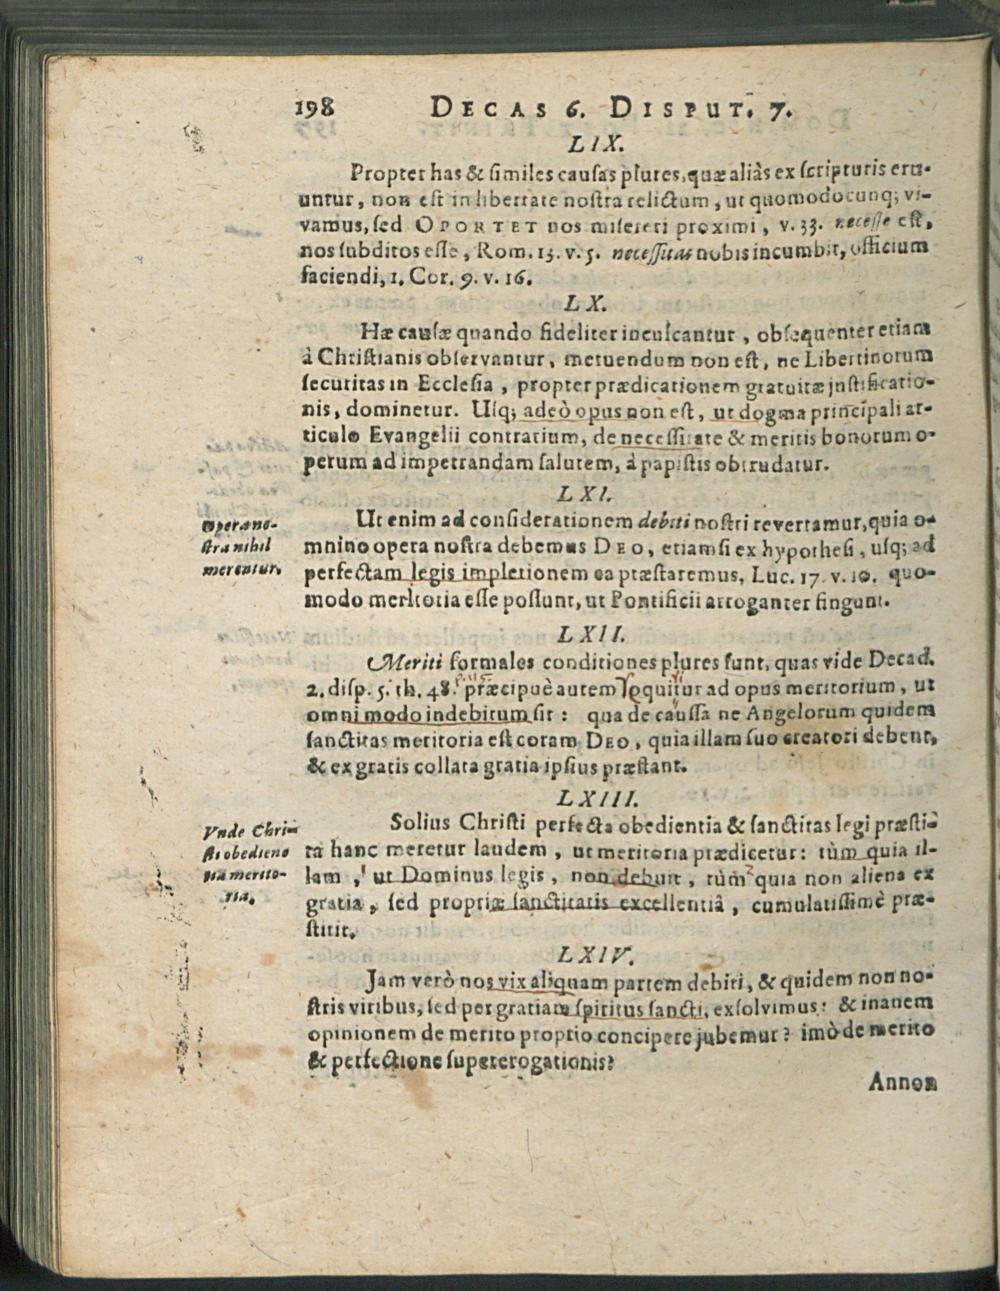 198 DECAS 6. DISPUT. 7.
LIX.
Propter has & similes causas plures, quæ aliàs ex scripturis eru-
untur, non est in libertate nostra relictum, ut quomodocunq; vi-
vamus, sed OPORTET nos misereri proximi, v. 33. necesse est,
nos subditos esse, Rom. 13. v. 5. necessitas nobis incumbit, officium
faciendi, 1. Cor. 9. v. 16.
LX.
Hæ causæ quando fideliter inculcantur, obsequenter etiam
à Christianis observantur, metuendum non est, ne Libertinorum
securitas in Ecclesia, propter prædicationem gratuitæ justificatio-
nis, dominetur. Usq; adeò opus non est, ut dogma principali ar-
ticulo Evangelii contrarium, de necessitate & meritis bonorum o-
perum ad impetrandam salutem, à papistis obtrudatur.
LXI.
Opera no-
stra nihil
merentur.
Ut enim ad considerationem debiti nostri revertamur, quia o-
mnino opera nostra debemus DEO, etiamsi ex hypothesi, usq; ad
perfectam legis impletionem ea præstaremus, Luc. 17. v. 10. quo-
modo meritoria esse possunt, ut Pontificii arroganter fingunt.
LXII.
Meriti formales conditiones plures sunt, quas vide Decad.
2. disp. 5. th. 48. præcipuè autem requiritur ad opus meritorium, ut
omni modo indebitum sit: qua de caussa ne Angelorum quidem
sanctitas meritoria est coram DEO, quia illam suo creatori debent,
& ex gratis collata gratia ipsius præstant.
LXIII.
Vnde Chri-
sti obedien-
tia merito-
ria.
Solius Christi perfecta obedientia & sanctitas legi præsti-
ta hanc meretur laudem, ut meritoria prædicetur: tùm quia il-
lam, ut Dominus legis, non debuit, tùm quia non aliena ex
gratia, sed propriæ sanctitatis excellentiâ, cumulatissimè præ-
stitit.
LXIV.
Jam verò nos vix aliquam partem debiti, & quidem non no-
stris viribus, sed per gratiam spiritus sancti, exsolvimus: & inanem
opinionem de merito proprio concipere jubemur? imò de merito
& perfectione supererogationis?
Annon